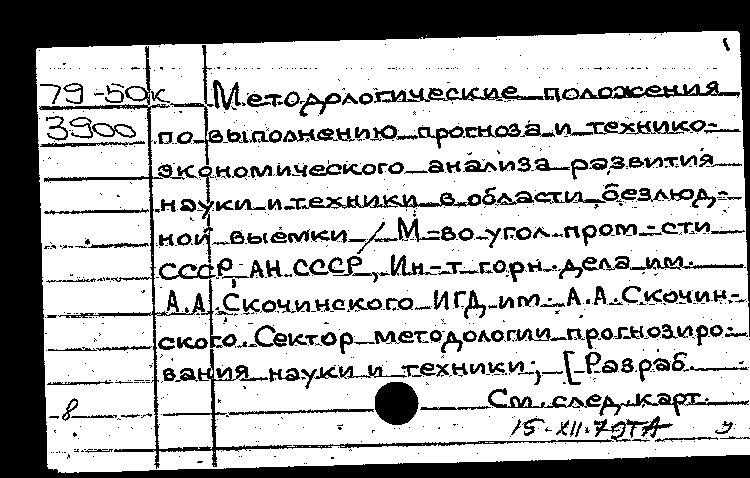 79-50к Методологические положения
3900 по выполнению прогноза и технико-
экономического анализа развития
науки и техники в области безлюд-
ной выемки / М-во угол. пром-сти
СССР, АН СССР, Ин-т горн. дела им.
А.А. Скочинского ИГД им. А.А. Скочин-
ского. Сектор методологии прогнозиро-
вания науки и техники; [Разраб.
8 См. след. карт.
15-XII-79